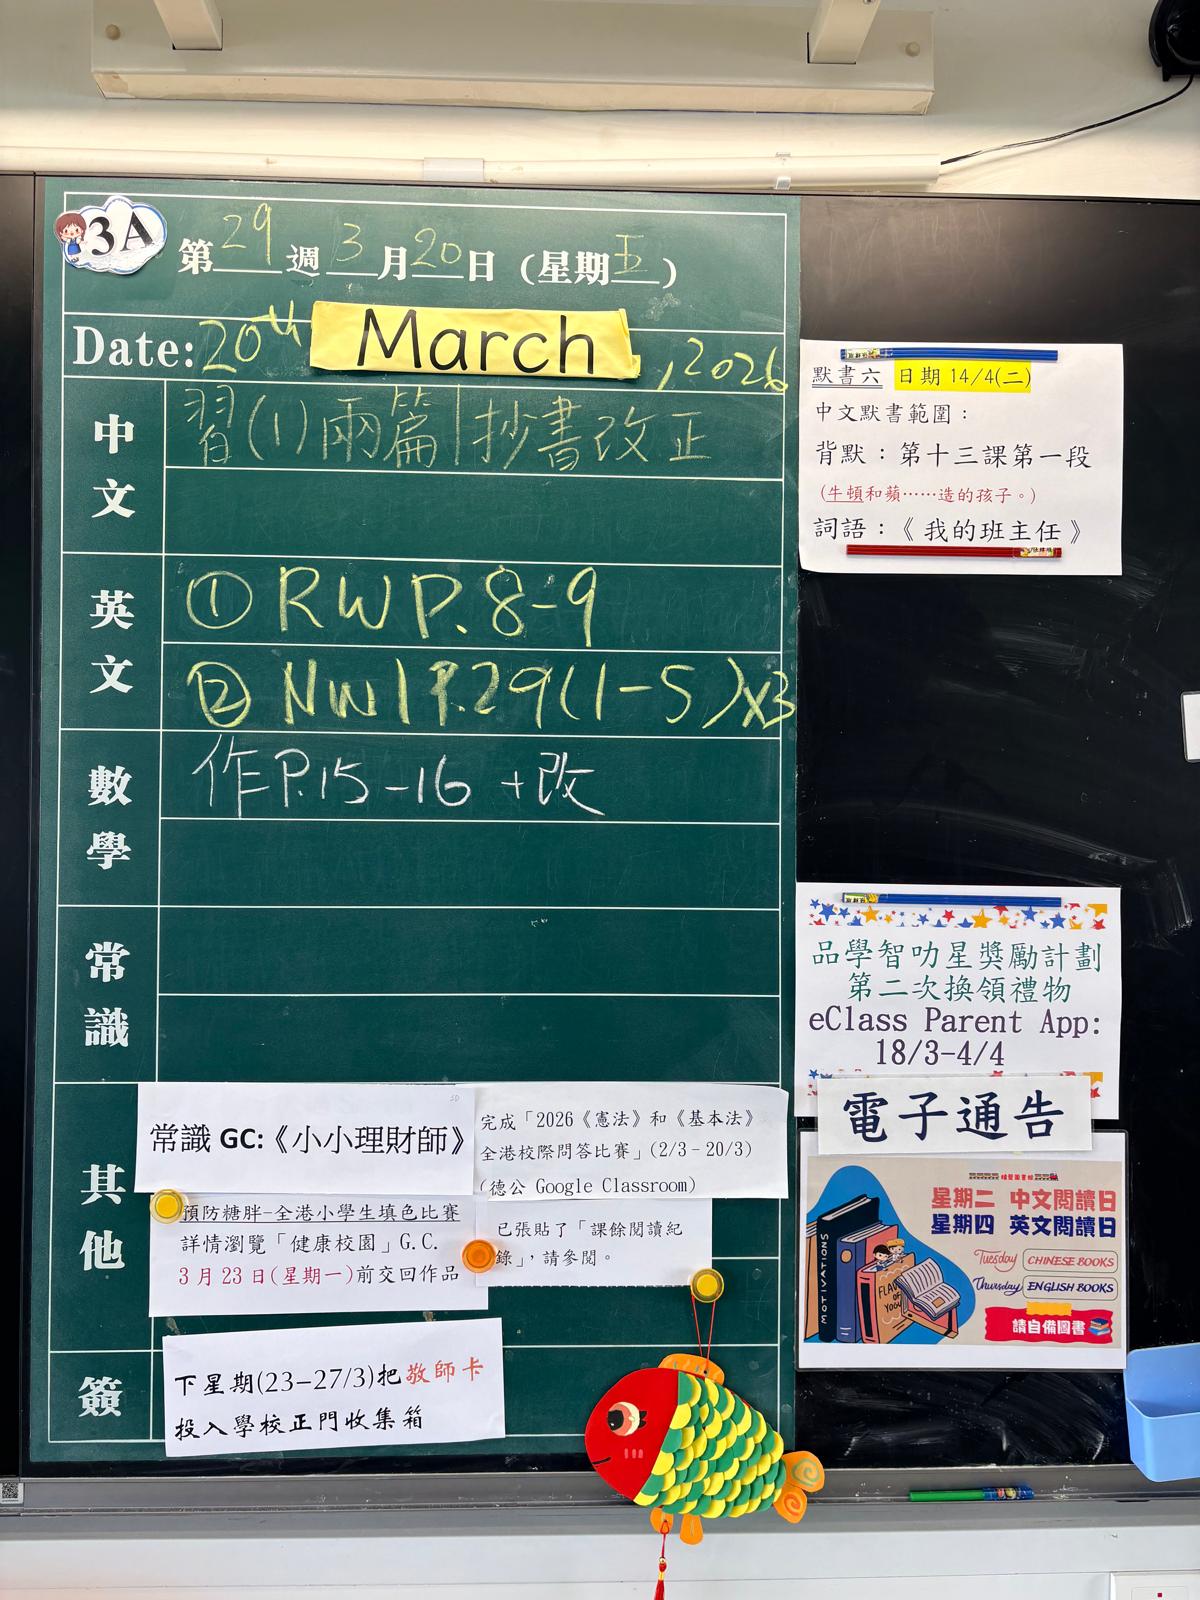 3A
第29週3月20日(星期五)
Date: 20th March, 2026
中文
習(1)兩篇|抄書改正
英文
① RWP.8-9
② NW1 P.29(1-5)x3
數學
作P.15-16 +改
常識
其他
常識 GC:《小小理財師》
完成「2026《憲法》和《基本法》
全港校際問答比賽」(2/3–20/3)
(德公 Google Classroom)
預防糖胖-全港小學生填色比賽
詳情瀏覽「健康校園」G.C.
3月23日(星期一)前交回作品
已張貼了「課餘閱讀紀
錄」,請參閱。
簽
下星期(23–27/3)把敬師卡
投入學校正門收集箱
默書六 日期14/4(二)
中文默書範圍:
背默:第十三課第一段
(牛頓和蘋……造的孩子。)
詞語:《我的班主任》
品學智叻星獎勵計劃
第二次換領禮物
eClass Parent App:
18/3-4/4
電子通告
星期二 中文閱讀日
星期四 英文閱讀日
Tuesday CHINESE BOOKS
Thursday ENGLISH BOOKS
請自備圖書
MOTIVATIONS